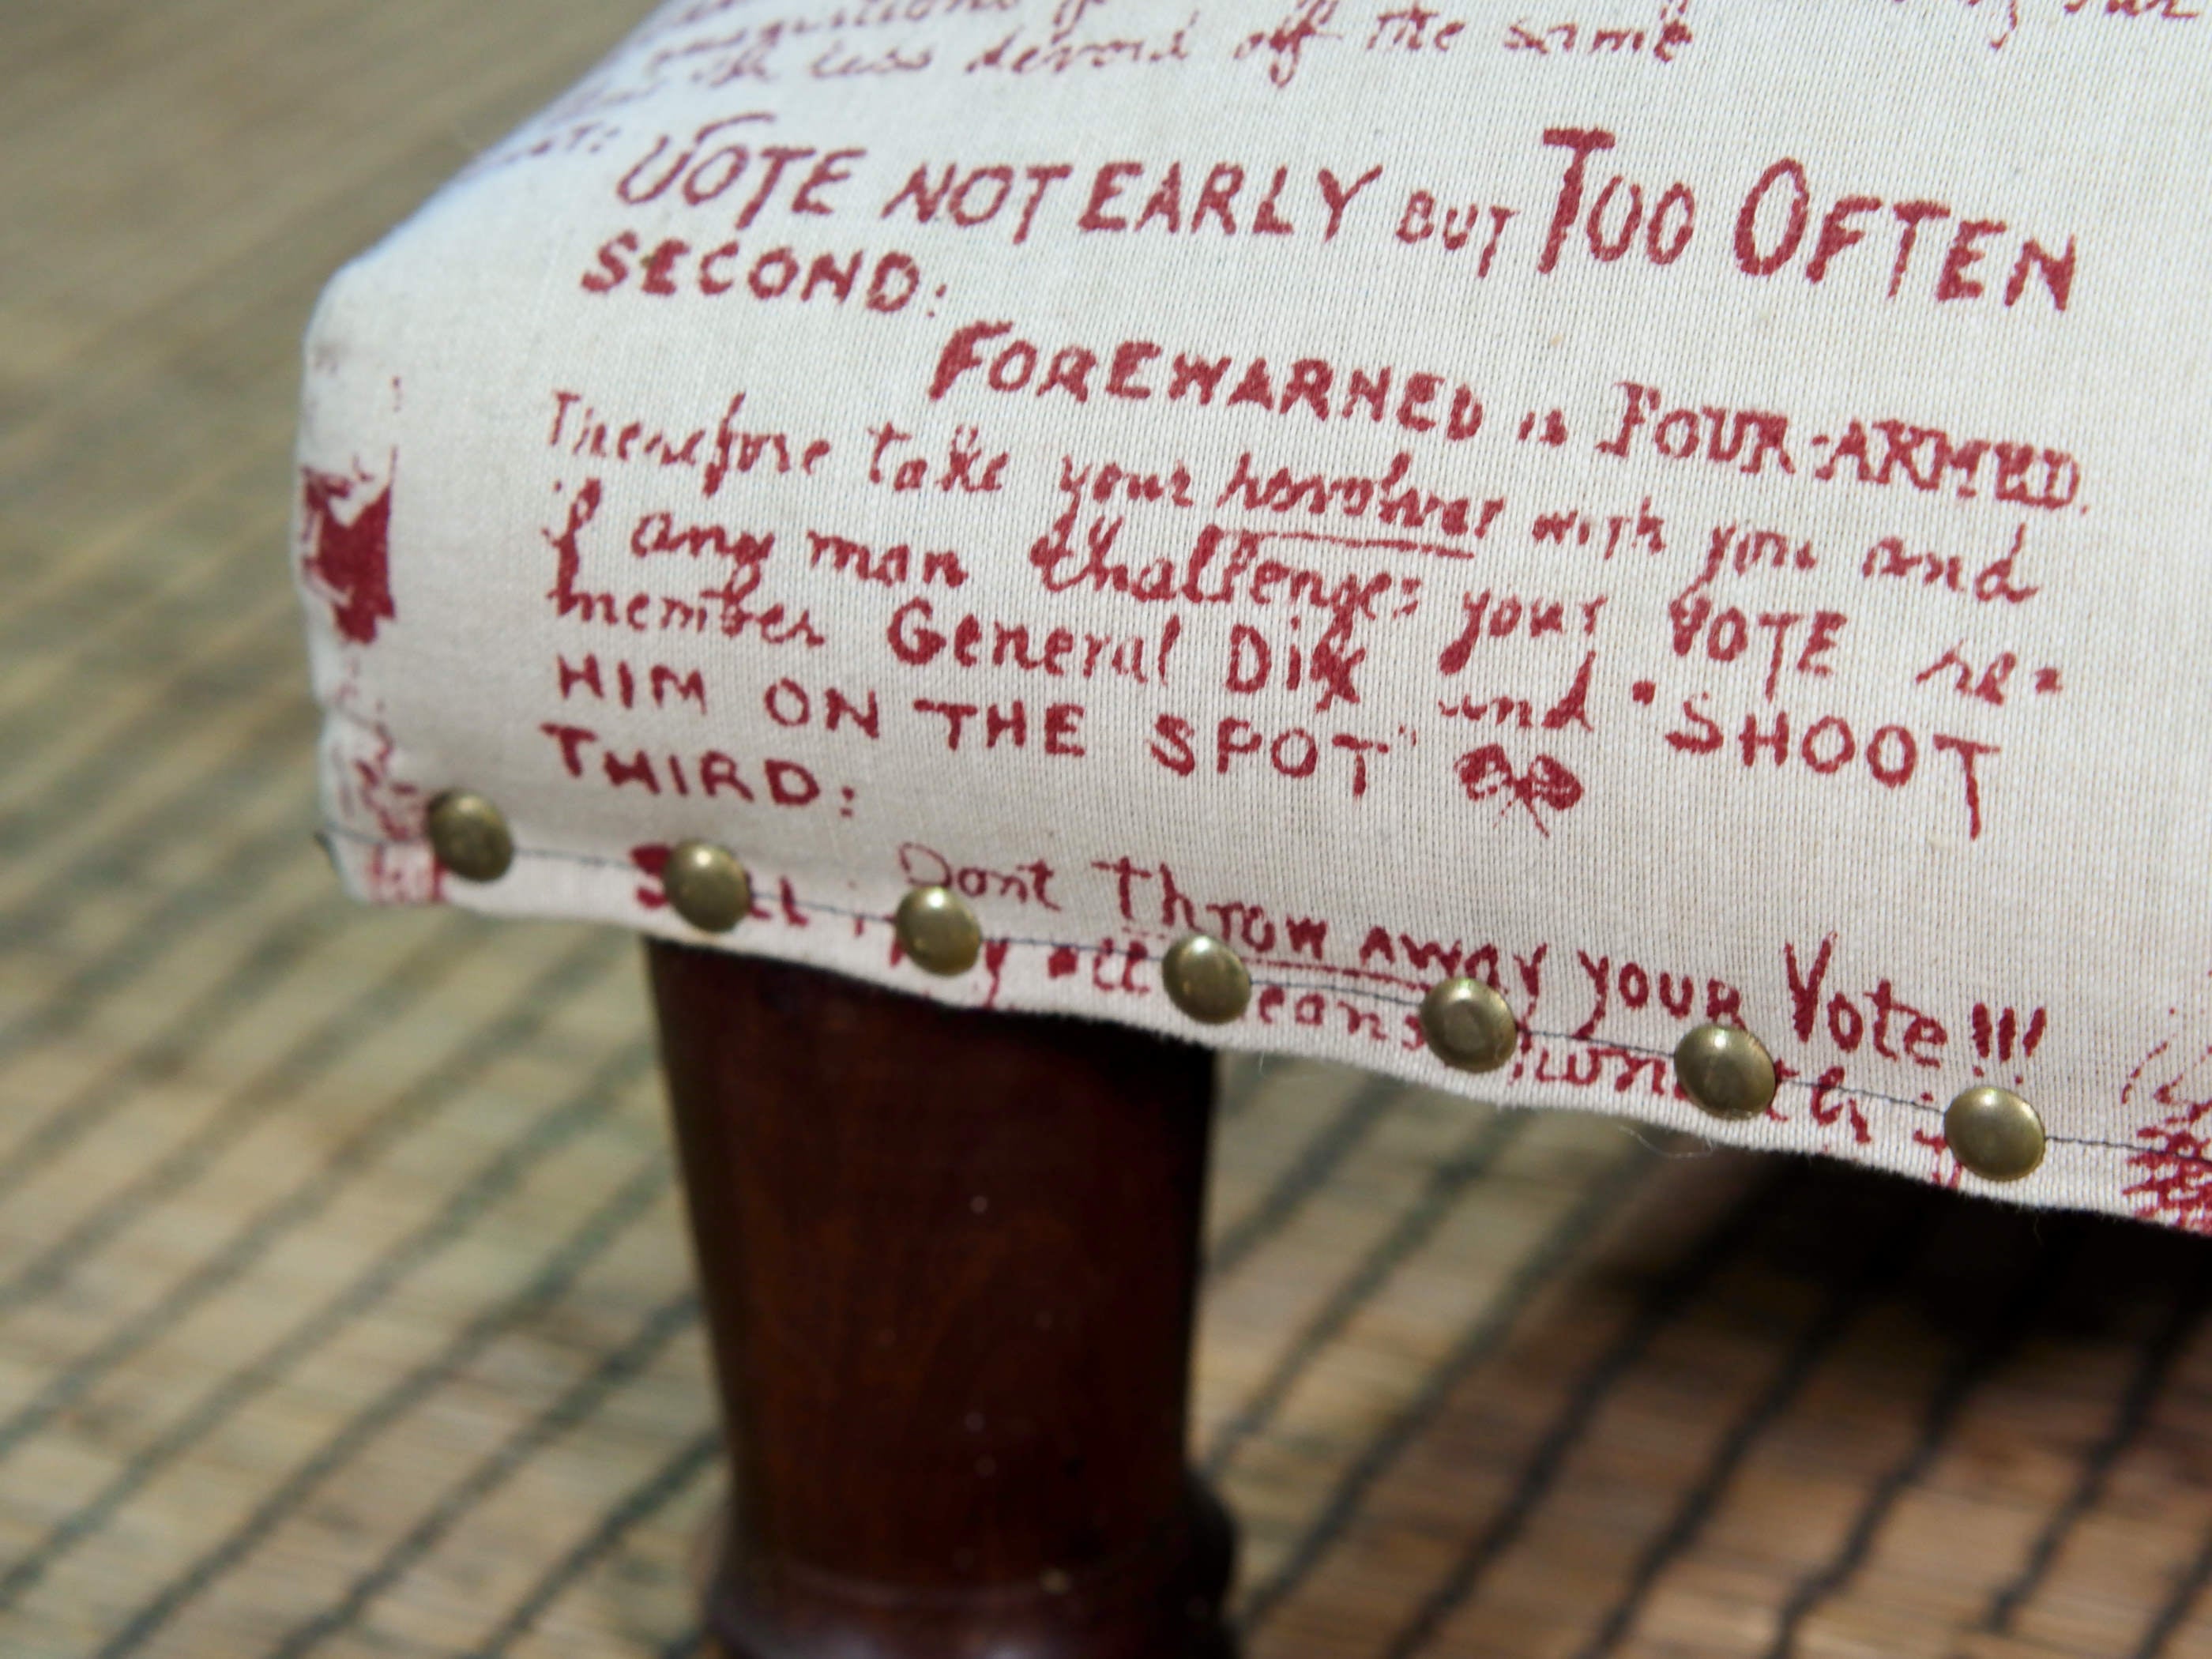 the less devoid off the same
VOTE NOT EARLY BUT TOO OFTEN
SECOND:
FOREWARNED is FOUR-ARMED.
Therefore take your revolver with you and
if any man challenges your VOTE re-
member General Dix and "SHOOT
HIM ON THE SPOT"
THIRD:
Dont Throw away your Vote!!!
all